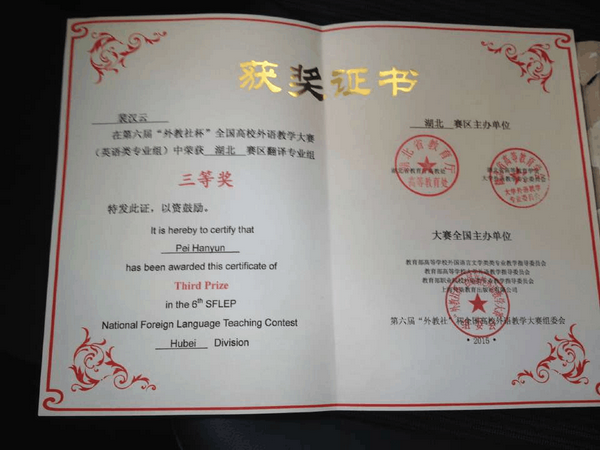 获奖证书
裴汉云
在第六届“外教社杯”全国高校外语教学大赛
（英语类专业组）中荣获 湖北 赛区翻译专业组
三等奖
特发此证，以资鼓励。
It is hereby to certify that
Pei Hanyun
has been awarded this certificate of
Third Prize
in the 6th SFLEP
National Foreign Language Teaching Contest
Hubei Division
湖北 赛区主办单位
湖北省教育厅
高等教育处
大学外语教学
大赛全国主办单位
教育部高等学校外国语言文学类专业教学指导委员会
教育部高等学校大学外语教学指导委员会
教育部职业院校外语类专业教学指导委员会
上海外语教育出版社有限公司
第六届“外教社”杯全国高校外语教学大赛组委会
·2015·